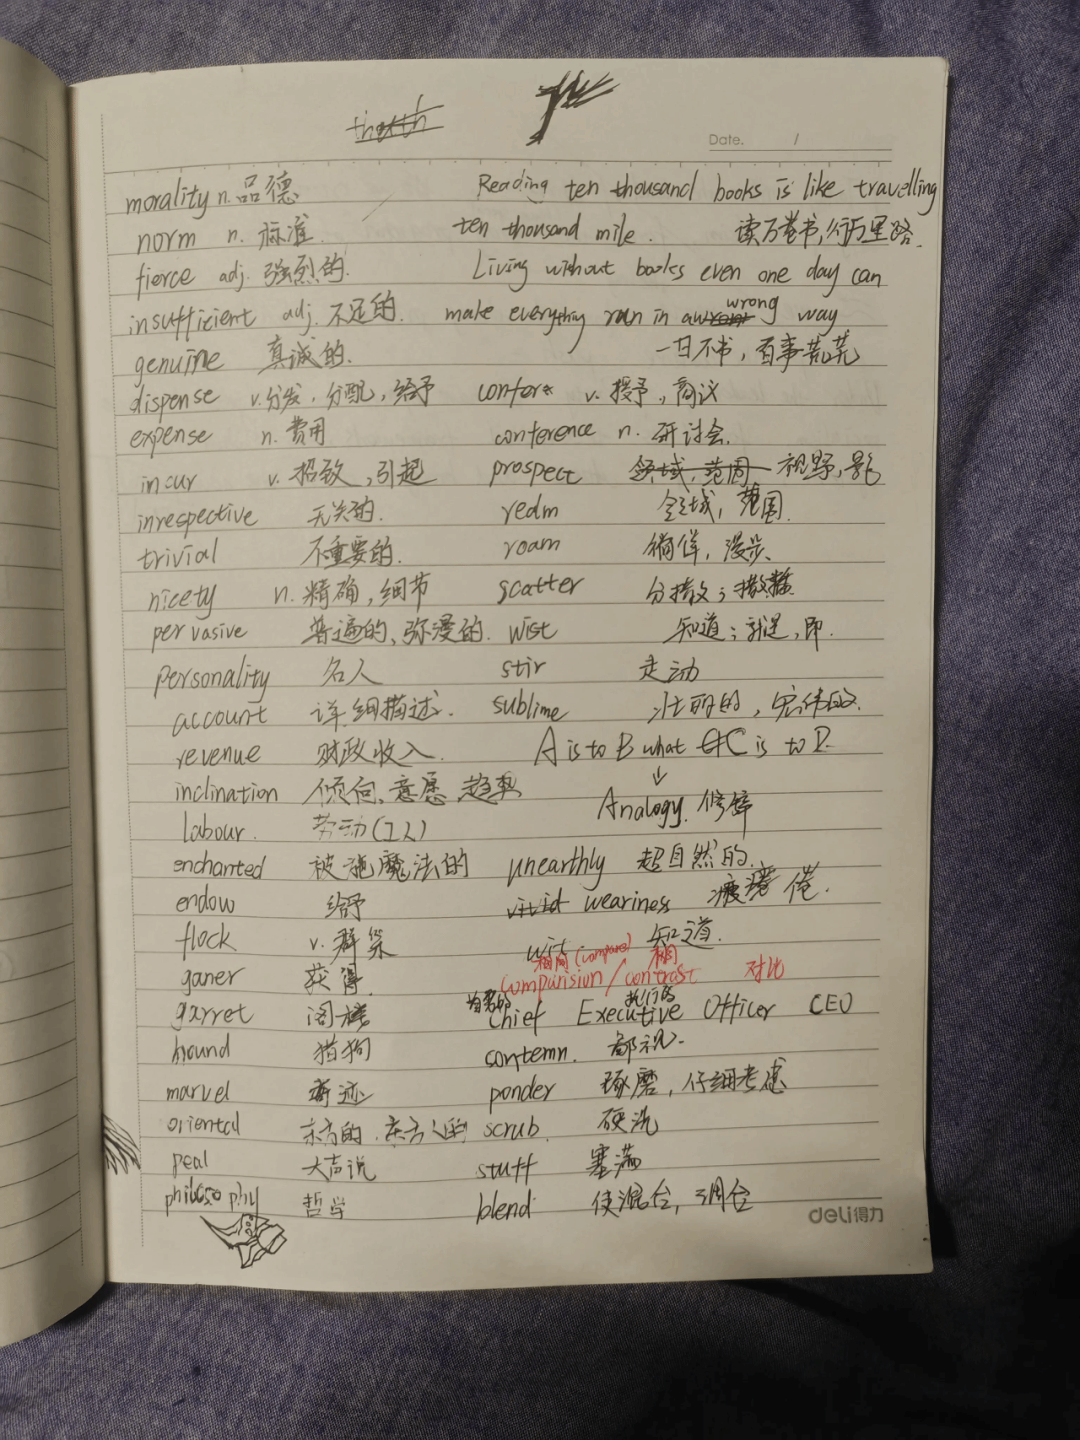 Date. /
morality n. 品德 Reading ten thousand books is like travelling
norm n. 标准. ten thousand mile. 读万卷书,行万里路.
fierce adj. 强烈的. Living without books even one day can
insufficient adj. 不足的. make everything run in a wrong way
genuine 真诚的. 一日不书,百事荒芜
dispense v. 分发,分配,给予 confer v. 授予,商议
expense n. 费用 conference n. 研讨会.
incur v. 招致,引起 prospect 领域,范围 视野,
inrespective 无关的. redm 领域,范围.
trivial 不重要的. roam 徜徉,漫步.
nicety n. 精确,细节 scatter 分散;撒播
pervasive 普遍的、弥漫的. wist 知道;就是,即.
personality 名人 stir 走动
account 详细描述. sublime 壮丽的,宏伟的.
revenue 财政收入. A is to B what C is to D.
↓
inclination 倾向、意愿、趋势 Analogy. 修辞
labour. 劳动(工人)
enchanted 被施魔法的 unearthly 超自然的.
endow 给予 vivid weariness 疲倦.
flock v. 群集 wit 知道.
相同 (compare)
ganer 获得. comparision / contrast 对比
首席的 执行的
garret 阁楼 Chief Executive Officer CEO
hound 猎狗 contemn. 鄙视.
marvel 奇迹 ponder 琢磨,仔细考虑
oriental 东方的.东方人的 scrub. 硬洗
peal 大声说 stuff 塞满
philosophy 哲学 blend 使混合,调合
deli得力